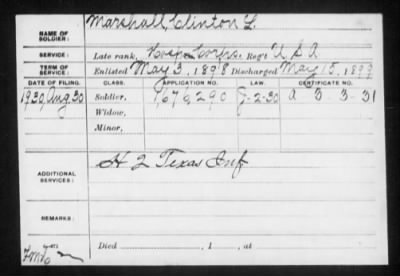 NAME OF SOLDIER: Marshall, Clinton L.
SERVICE: Late rank, Hosp. Corps, Reg't U S A
TERM OF SERVICE: Enlisted May 3, 1898 Discharged May 15, 1899
DATE OF FILING. CLASS. APPLICATION NO. LAW. CERTIFICATE NO.
1930 Aug 30 Soldier, 1676290 J-2-30 A 3 3-31
Widow,
Minor,
ADDITIONAL SERVICES: H 2 Texas Inf
REMARKS:
Died , 1 , at